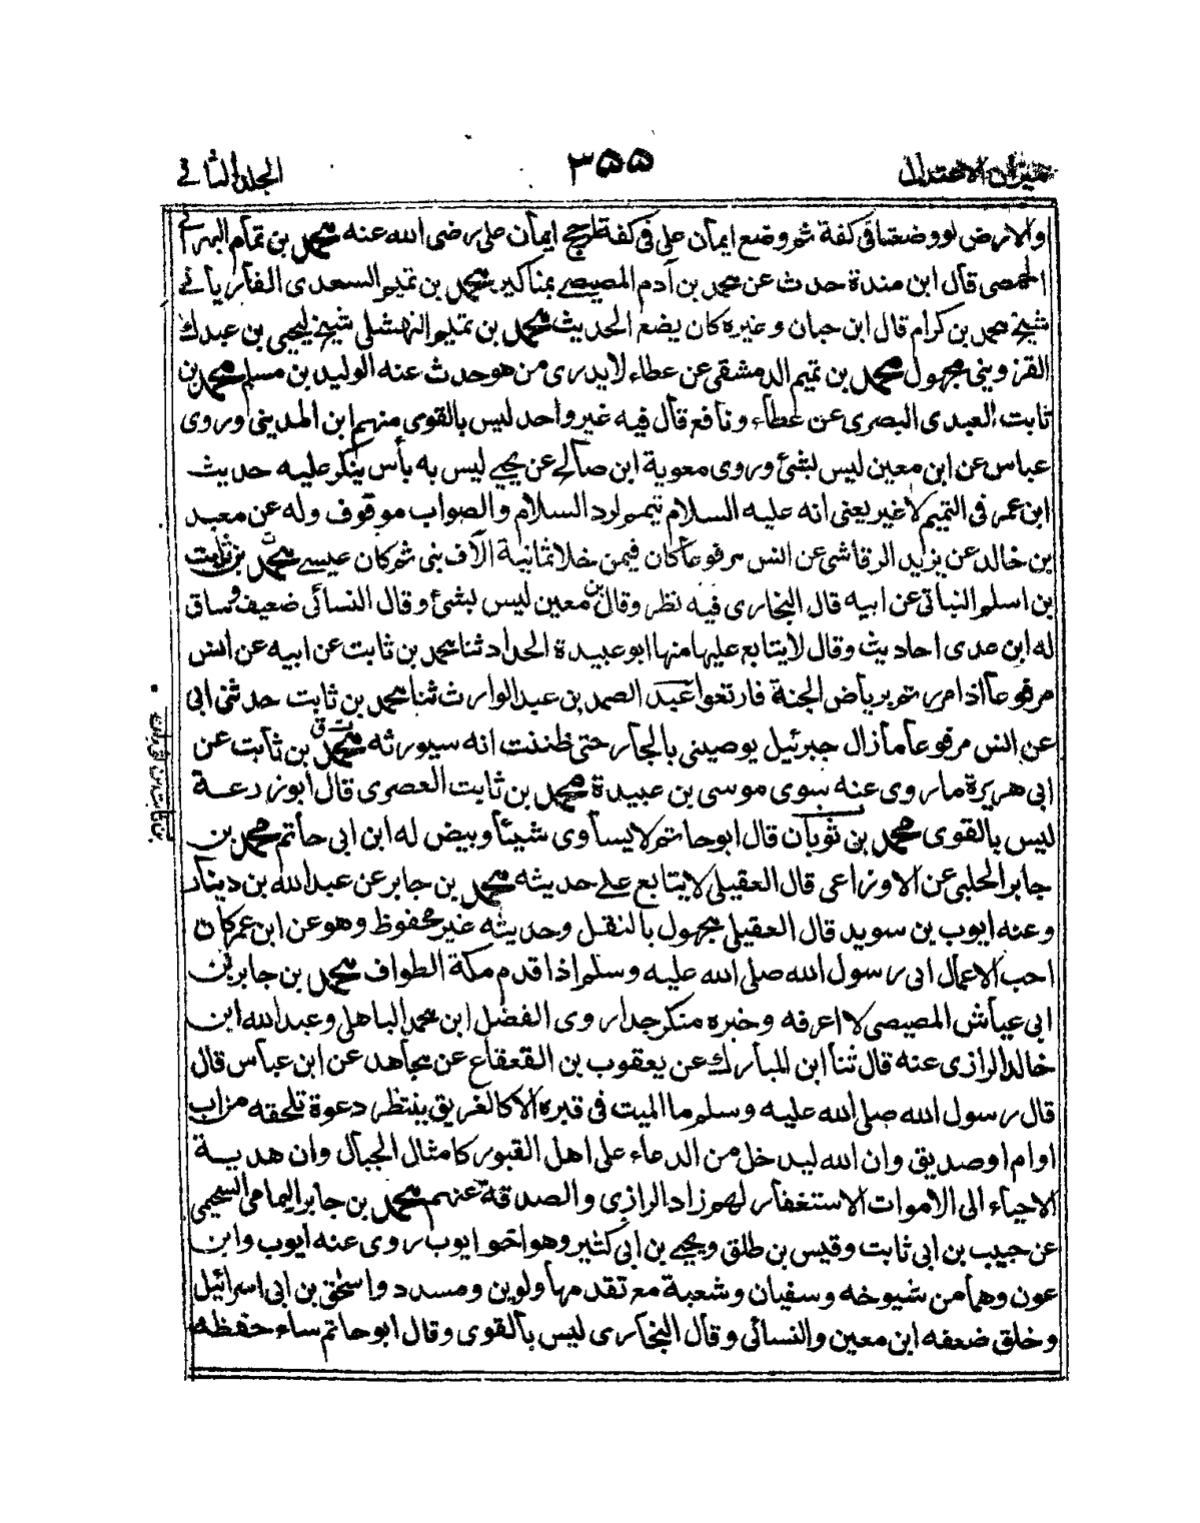 ميزان الاعتدال
٣٥٥
المجلد الثاني
والارض لو وضعتا في كفة ثم وضع ايمان علي في كفة لرجح ايمان علي رضى الله عنه محمد بن تمام البهراني
الحمصى قال ابن مندة حدث عن محمد بن آدم المصيصے بمناكير محمد بن تميم السعدى الفاريابے
شيخ محمد بن كرام قال ابن حبان وغيره كان يضع الحديث محمد بن تميم النهشلي شيخ ليحيى بن عبدك
القزوينى مجهول محمد بن تميم الدمشقى عن عطاء لا يدرى من هو حدث عنه الوليد بن مسلم محمد بن
ثابت العبدى البصرى عن عطاء ونافع قال فيه غير واحد ليس بالقوى منهم ابن المدينى وروى
عباس عن ابن معين ليس بشئ وروى معوية ابن صالح عن يحيے ليس به بأس ينكر عليه حديث
ابن عمر فى التيمم لا غير يعنى انه عليه السلام تيمم لرد السلام والصواب موقوف وله عن معبد
بن خالد عن يزيد الرقاشى عن انس مرفوعا كان فيمن خلا ثمانية الآف نبى ثم كان عيسے محمد بن ثابت
بن اسلم البنانى عن ابيه قال البخارى فيه نظر وقال بن معين ليس بشئ وقال النسائى ضعيف وساق
له ابن عدى احاديث وقال لا يتابع عليها منها ابو عبيدة الحداد ثنا محمد بن ثابت عن ابيه عن انس
مرفوعا اذا مررتم برياض الجنة فارتعوا عبد الصمد بن عبد الوارث ثنا محمد بن ثابت حدثنى ابى
عن انس مرفوعا ما زال جبرئيل يوصينى بالجار حتى ظننت انه سيورثه محمد بن ثابت عن
ابى هريرة ما روى عنه سوى موسى بن عبيدة محمد بن ثابت العصرى قال ابو زرعة
ليس بالقوى محمد بن ثوبان قال ابو حاتم لا يساوى شيئا وبيض له ابن ابى حاتم محمد بن
جابر الحلبى عن الاوزاعى قال العقيلى لا يتابع علے حديثه محمد بن جابر عن عبد الله بن دينار
وعنه ايوب بن سويد قال العقيلى مجهول بالنقل وحديثه غير محفوظ وهو عن ابن عمر كان
احب الاعمال الى رسول الله صلى الله عليه وسلم اذا قدم مكة الطواف محمد بن جابر بن
ابى عياش المصيصى لا اعرفه وخبره منكر جدا روى الفضل ابن محمد الباهلى وعبد الله ابن
خالد الرازى عنه قال ثنا ابن المبارك عن يعقوب بن القعقاع عن مجاهد عن ابن عباس قال
قال رسول الله صلى الله عليه وسلم ما الميت فى قبره الا كالغريق ينتظر دعوة تلحقه من اب
او ام او صديق وان الله ليدخل من الدعاء على اهل القبور كامثال الجبال وان هدية
الاحياء الى الاموات الاستغفار لهم زاد الرازى والصدقة عنهم محمد بن جابر اليمامى السحيمى
عن حبيب بن ابى ثابت وقيس بن طلق ويحيے بن ابى كثير وهو اخو ايوب روى عنه ايوب وابن
عون وهما من شيوخه وسفيان وشعبة مع تقدمها ولوين ومسدد واسحق بن ابى اسرائيل
وخلق ضعفه ابن معين والنسائى وقال البخارى ليس بالقوى وقال ابو حاتم ساء حفظه